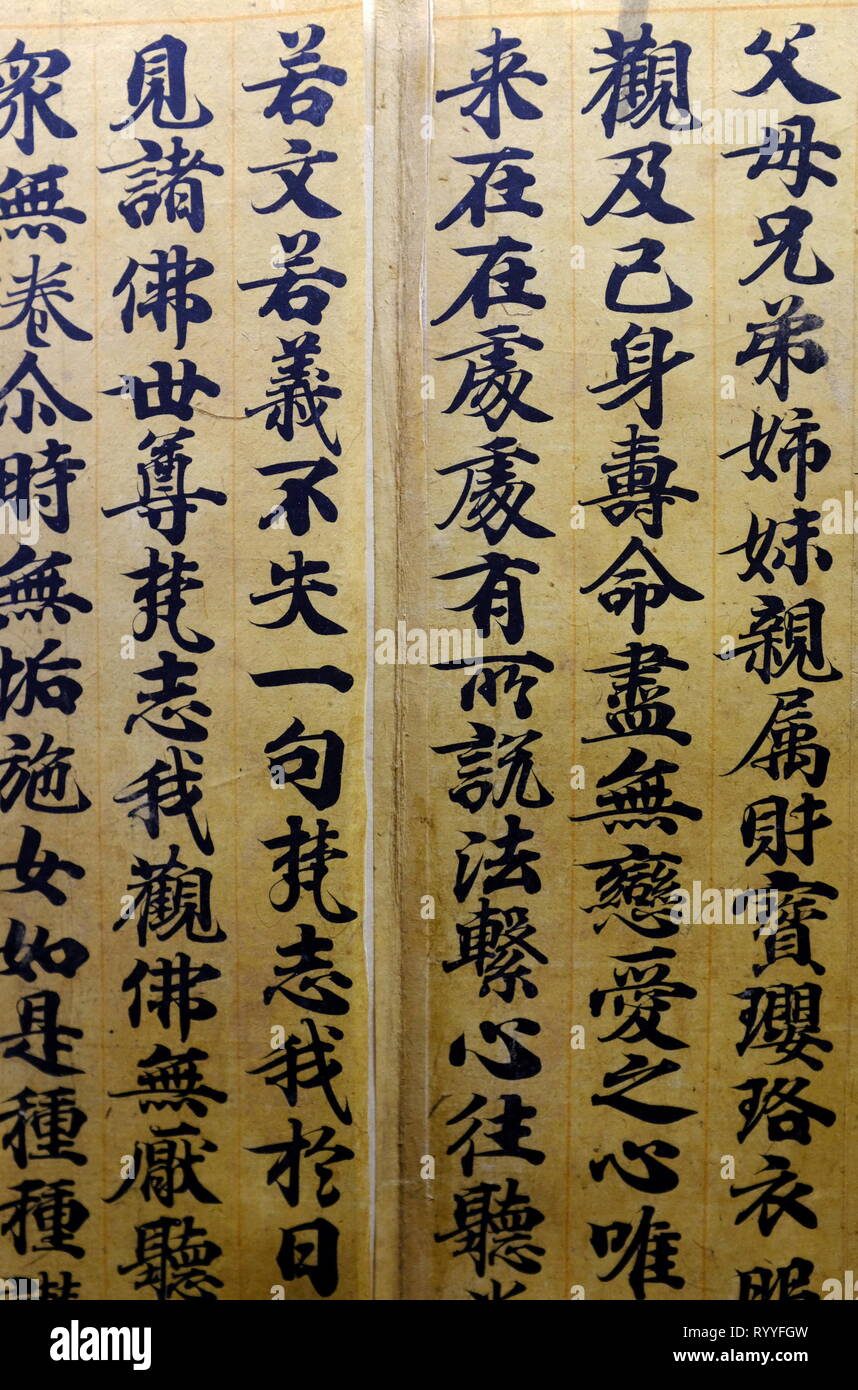 父母兄弟姉妹親属財寶瓔珞衣服
觀及己身壽命盡無戀愛之心唯
来在在處處有所説法繫心往聽
若文若義不失一句梵志我於日
見諸佛世尊梵志我觀佛無厭聽
衆無卷尒時無垢施女如是種種
alamy
alamy
Image ID: RYYFGW
www.alamy.com